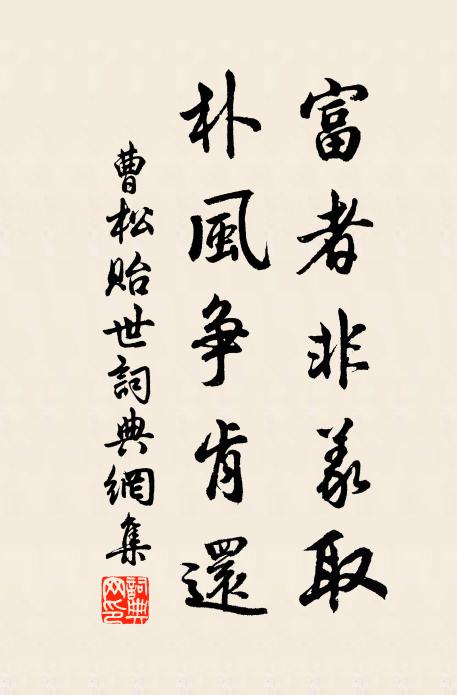 富者非義取
朴風争肯還
曹松貽世詞典網集
詞典网印